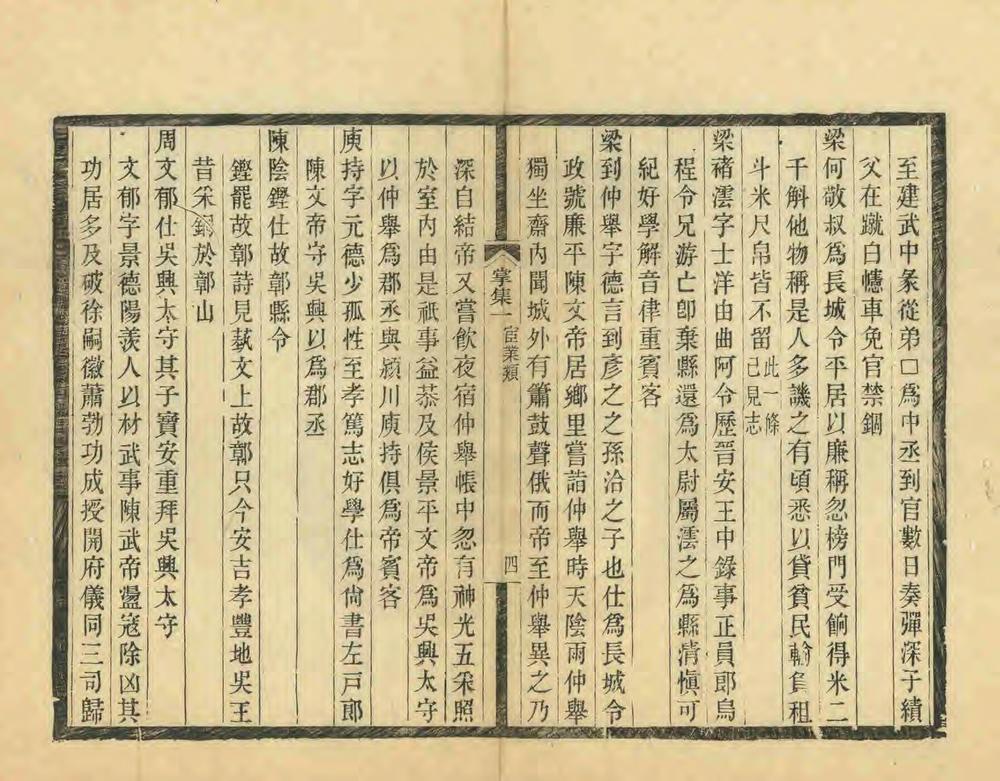 至建武中彖從弟□爲中丞到官數日奏彈深子績
父在蹴白幰車免官禁錮
梁何敬叔爲長城令平居以廉稱忽榜門受餉得米二
千斛他物稱是人多譏之有頃悉以貸貧民輸負租
斗米尺帛皆不留此一條已見志
梁褚澐字士洋由曲阿令歷晉安王中錄事正員郎烏
程令兄游亡卽棄縣還爲太尉屬澐之爲縣淸愼可
紀好學解音律重賓客
梁到仲舉字德言到彥之之孫洽之子也仕爲長城令
政號廉平陳文帝居鄉里嘗詣仲舉時天陰雨仲舉
獨坐齋內聞城外有簫鼓聲俄而帝至仲舉異之乃
掌集一 宦業類 四
深自結帝又嘗飮夜宿仲舉帳中忽有神光五采照
於室內由是祇事益恭及侯景平文帝爲吳興太守
以仲舉爲郡丞與潁川庾持俱爲帝賓客
庾持字元德少孤性至孝篤志好學仕爲尙書左戸郎
陳文帝守吳興以爲郡丞
陳陰鏗仕故鄣縣令
鏗罷故鄣詩見蓺文上故鄣只今安吉孝豐地吳王
昔采銅於鄣山
周文郁仕吳興太守其子寶安重拜吳興太守
文郁字景德陽羨人以材武事陳武帝盪寇除凶其
功居多及破徐嗣徽蕭勃功成授開府儀同三司歸